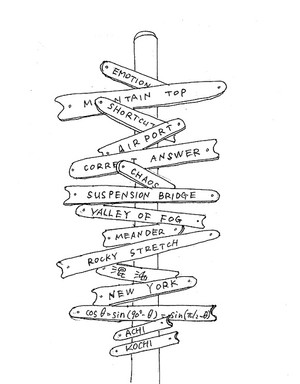 EMOTION
MOUNTAIN TOP
SHORTCUT
AIRPORT
CORRECT ANSWER
CHAOS
SUSPENSION BRIDGE
VALLEY OF FOG
MEANDER
ROCKY STRETCH
NEW YORK
cos θ = sin(90°-θ) = sin(π/2-θ)
ACHI
KOCHI